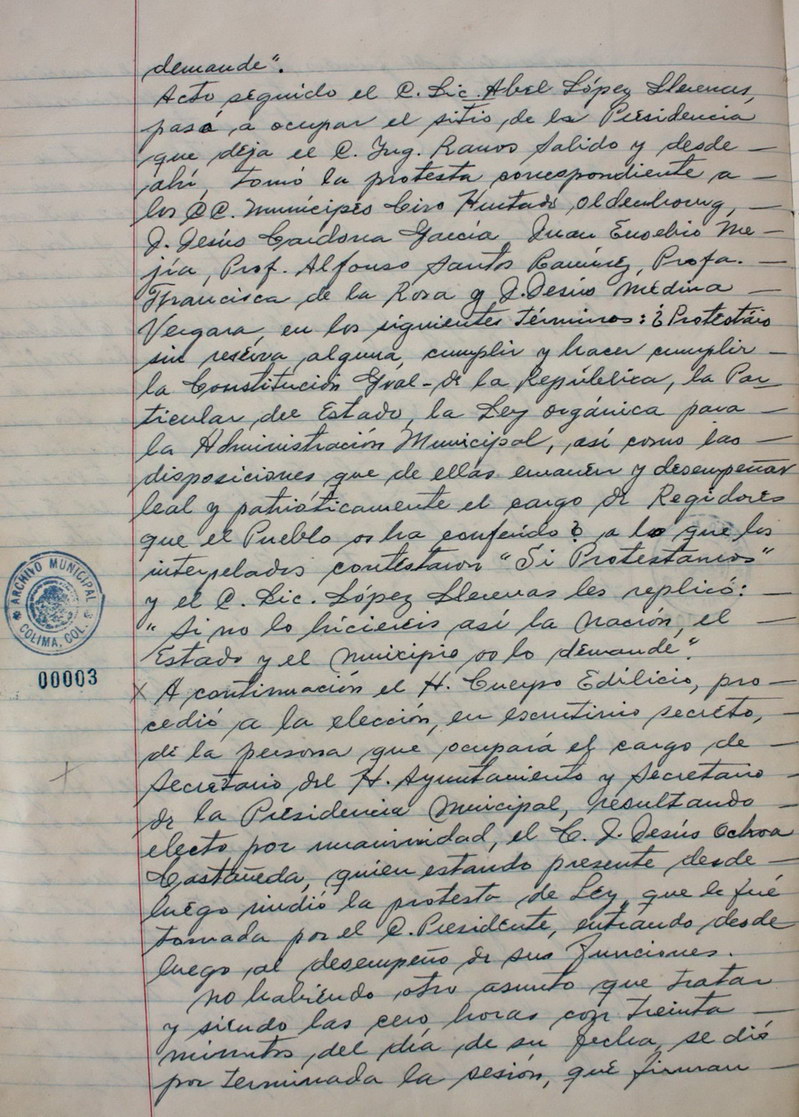 demande".
Acto seguido el C. Lic. Abel López Llerenas,
pasó a ocupar el sitio de la Presidencia
que deja el C. Ing. Ramos Salido y desde —
ahí, tomó la protesta correspondiente a —
los CC. Munícipes Ciro Hurtado Oldenbourg, —
J. Jesús Cardona García Juan Eusebio Me-
jía, Prof. Alfonso Santos Ramírez, Profa. —
Francisca de la Rosa y J. Jesús Medina
Vergara, en los siguientes términos: ¿Protestáis
sin reserva alguna, cumplir y hacer cumplir —
la Constitución Gral- de la República, la Par
ticular del Estado, la Ley orgánica para —
la Administración Municipal, así como las —
disposiciones que de ellas emanen y desempeñar
leal y patrióticamente el cargo de Regidores
que el Pueblo os ha conferido? a lo que los
interpelados contestaron "Si Protestamos"
y el C. Lic. López Llerenas les replicó: —
"Si no lo hiciereis así la Nación, el —
Estado y el municipio os lo demande".
ARCHIVO MUNICIPAL
COLIMA, COL.
00003
X A continuación el H. Cuerpo Edilicio, pro—
cedió a la elección, en escrutinio secreto,
de la persona que ocupará el cargo de —
Secretario del H. Ayuntamiento y Secretario
de la Presidencia Municipal, resultando
electo por unanimidad, el C. J. Jesús Ochoa
Castañeda, quien estando presente desde —
luego rindió la protesta de Ley que le fué
tomada por el C. Presidente, entrando desde
luego al desempeño de sus funciones.
No habiendo otro asunto que tratar
y siendo las cero horas con treinta —
minutos del día de su fecha, se dió
por terminada la sesión, que firman —